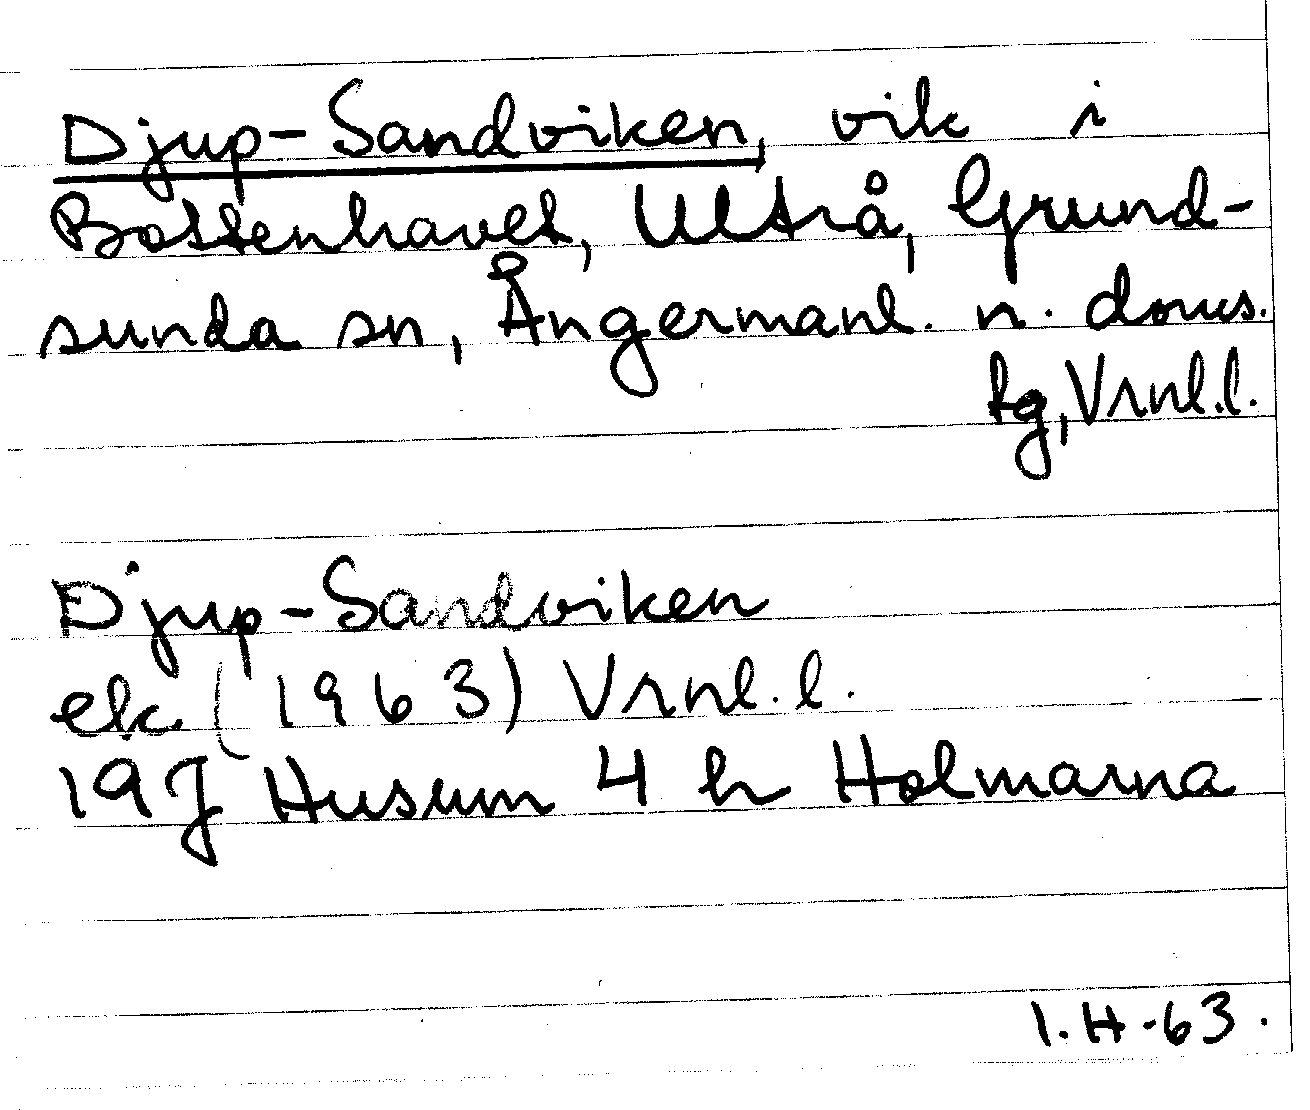 Djup-Sandviken, vik i
Bottenhavet, Ultrå, Grund-
sunda sn, Ångermanl. n. doms.
tg, Vrnl.l.
Djup-Sandviken
ek (1963) Vrnl.l.
19J Husum 4 h Holmarna
I.H-63.